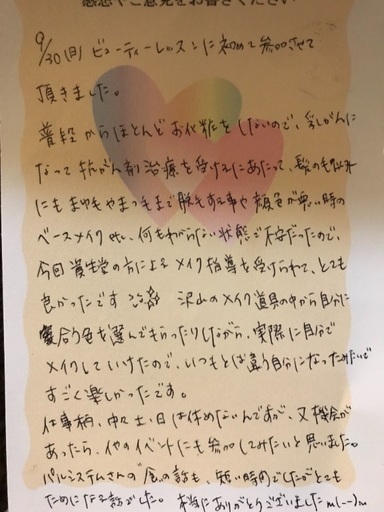 感想やご意見をお書きください
9/30(日) ビューティーレッスンに初めて参加させて
頂きました。
普段からほとんどお化粧をしないので、乳がんに
なって抗がん剤治療を受けるにあたって、髪の毛以外
にもまゆ毛やまつ毛まで脱毛する事や顔色が悪い時の
ベースメイク etc、何もわからない状態で不安だったので、
今回資生堂の方によるメイク指導を受けられて、とても
良かったです 沢山のメイク道具の中から自分に
似合う色を選んでもらったりしながら、実際に自分で
メイクしていけたので、いつもとは違う自分になったみたいで
すごく楽しかったです。
仕事柄、中々土、日は休めないんですが、又機会が
あったら、他のイベントにも参加してみたいと思いました。
パルシステムさんの"食"の話も、短い時間でしたがとても
ためになる話でした。 本当にありがとうございましたm(--)m